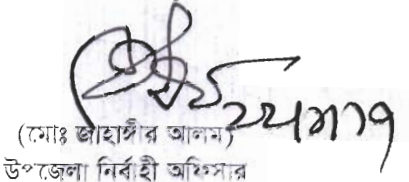 (মোঃ জাহাঙ্গীর আলম)
উপজেলা নির্বাহী অফিসার